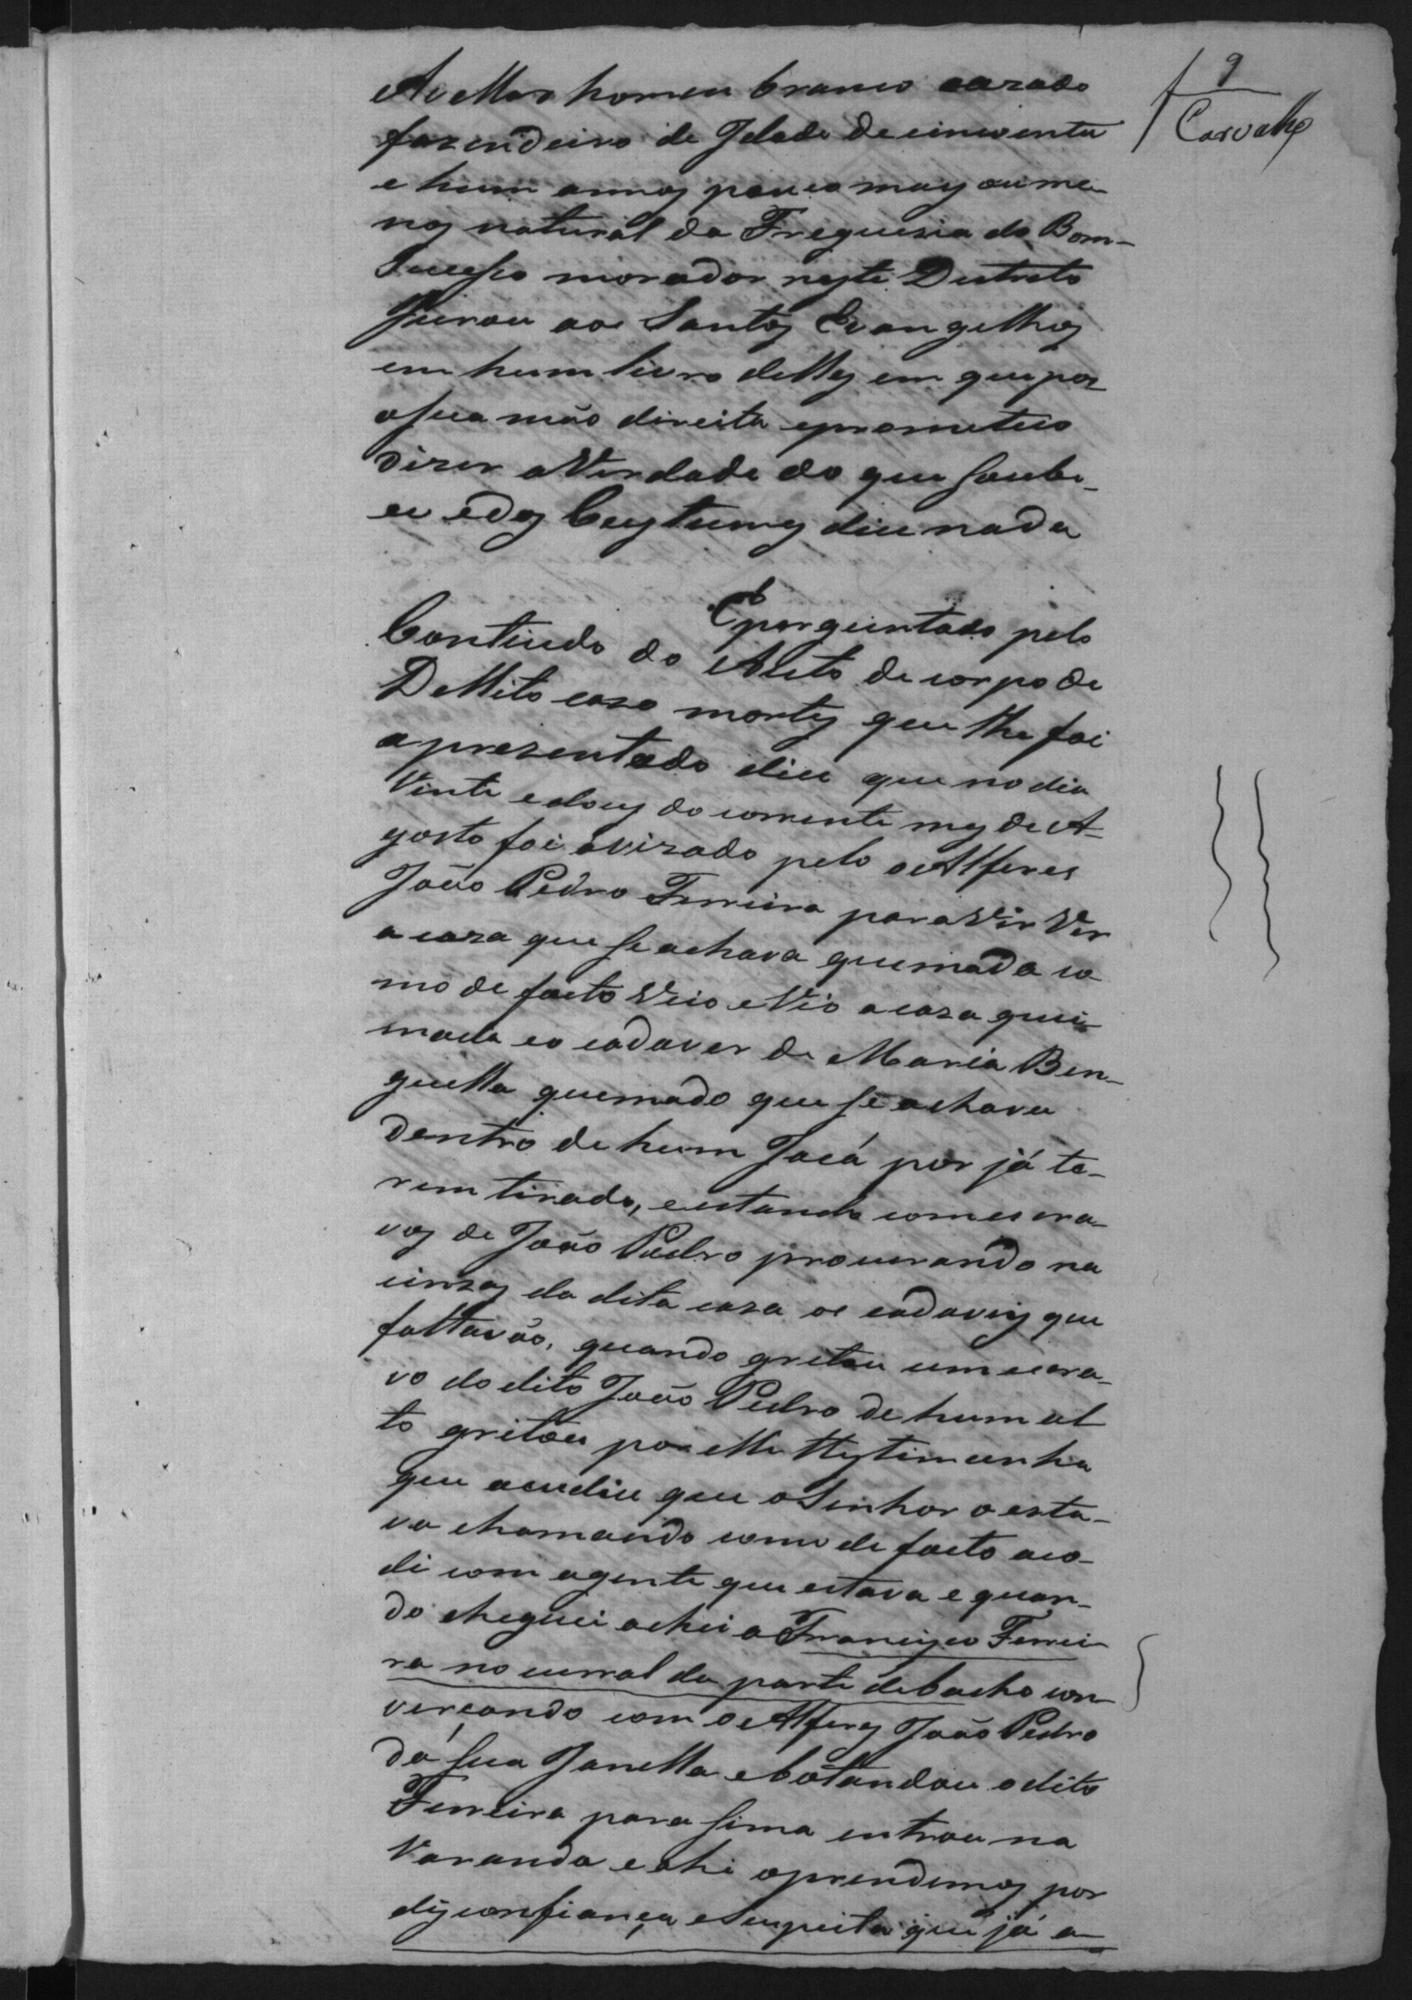 9
Carvalho
Avellar homem branco cazado
fazendeiro de Idade de cincoenta
e hum annos pouco mays ou me-
nos natural da Freguezia do Bom-
Sucesso morador neste Destreto
Jurou aos Santos Evangelhos
em hum livro delles em que pos
a sua mão direita e prometeo
dizer a Verdade do que soube-
ce e dos Custumes dice nada
E perguntado pelo
Contiudo do Auto de corpo de
Dellito caso mortes que lhe foi
aprezentado dice que no dia
Vinte e dous do corrente mes de A-
gosto foi avizado pelo o Alferes
João Pedro Ferreira para Vir Ver
a caza que se achava queimada co
mo de facto Veio e Vio a caza quei-
mada e o cadaver de Maria Ben-
guella quemado que se achava
dentro de hum Jacá por já te-
rem tirado, e estando com escra-
vos de João Pedro procurando na
cinzas da dita caza os cadaveis que
faltavão, quando gritou um escra-
vo do dito João Pedro de hum al
to gritou por elle testimunha
que acudice que o Senhor o esta-
va chamando como de facto aco-
di com a gente que estava e quan-
do cheguei achei a Francisco Ferrei-
ra no curral da parte debacho con-
verçando com o Alferes João Pedro
da sua Janella e botandou o dito
Ferreira para sima entrou na
Varanda e ahi o prendemos por
disconfiança e Suspeita que já a-